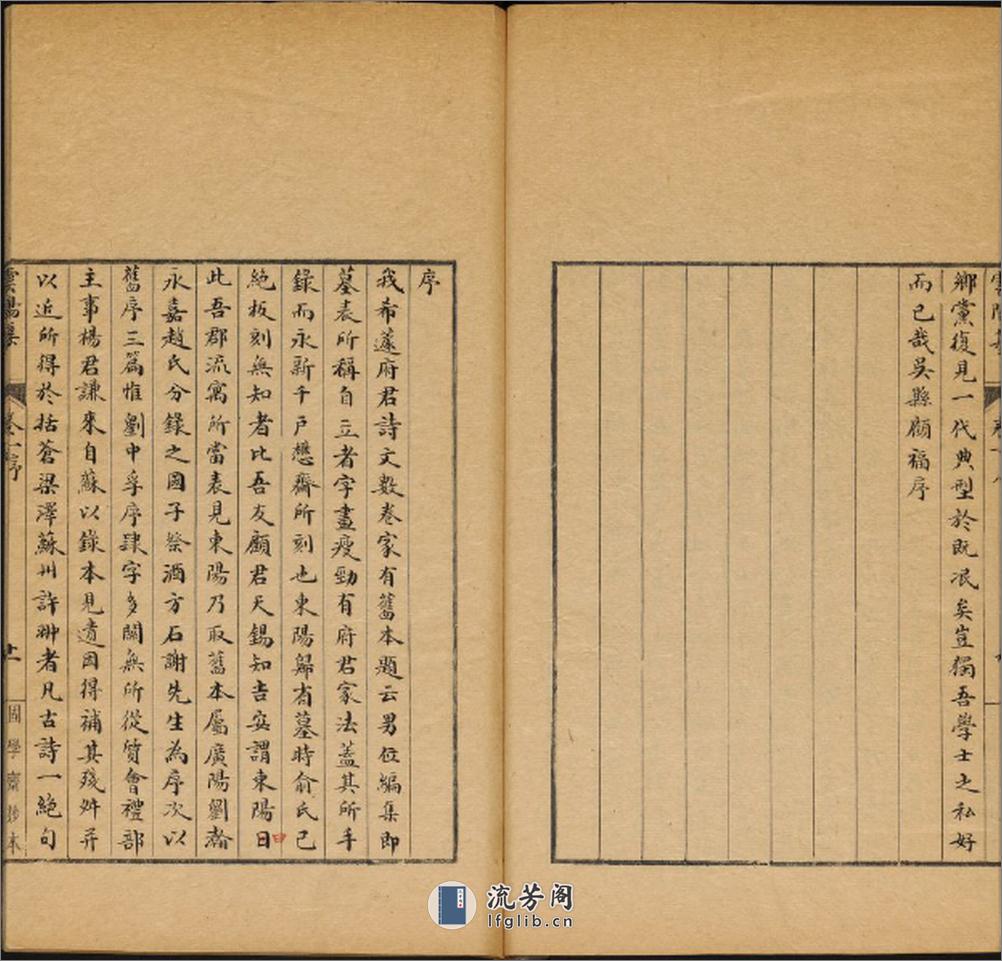 鄉黨復見一代典型於既泯矣豈獨吾學士之私好
而已哉吳縣顧福序
序
我希蘧府君詩文數卷家有舊本題云男位編集即
墓表所稱自立者字畫瘦勁有府君家法蓋其所手
錄而永新千戶懋齋所刻也東陽歸省墓時俞氏已
絕板刻無知者比吾友顧君天錫知吉安謂東陽曰
此吾郡流寓所當表見東陽乃取舊本屬廣陽劉瀚
永嘉趙氏分錄之國子祭酒方石謝先生為序次以
舊序三篇惟劉中孚序肆字多闕無所從質會禮部
主事楊君謙來自蘇以錄本見遺因得補其殘舛并
以近所得於括蒼梁澤蘇州許翀者凡古詩一絕句
雲陽集
卷一序
十一
固學齋抄本
流芳阁
lfglib.cn